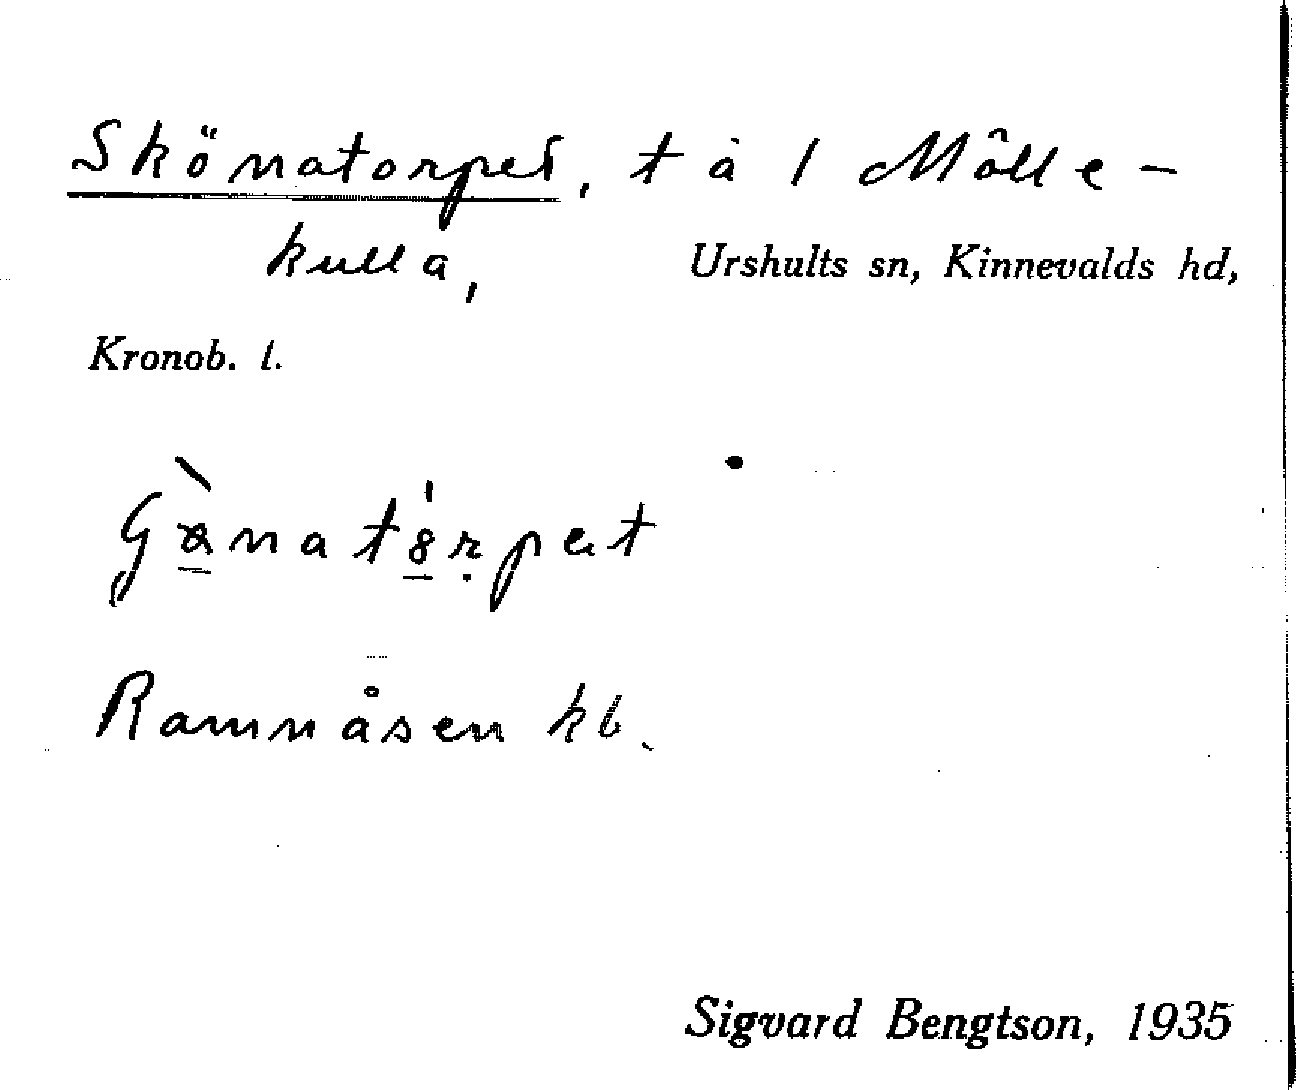 Skönatorpet, t å 1 Mölle-
kulla, Urshults sn, Kinnevalds hd,
Kronob. l.
Ramnåsen kb.
Sigvard Bengtson, 1935